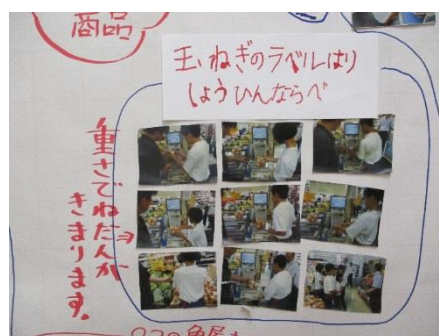 商品
玉ねぎのラベルはり
しょうひんならべ
重さでねだんが
きまります。